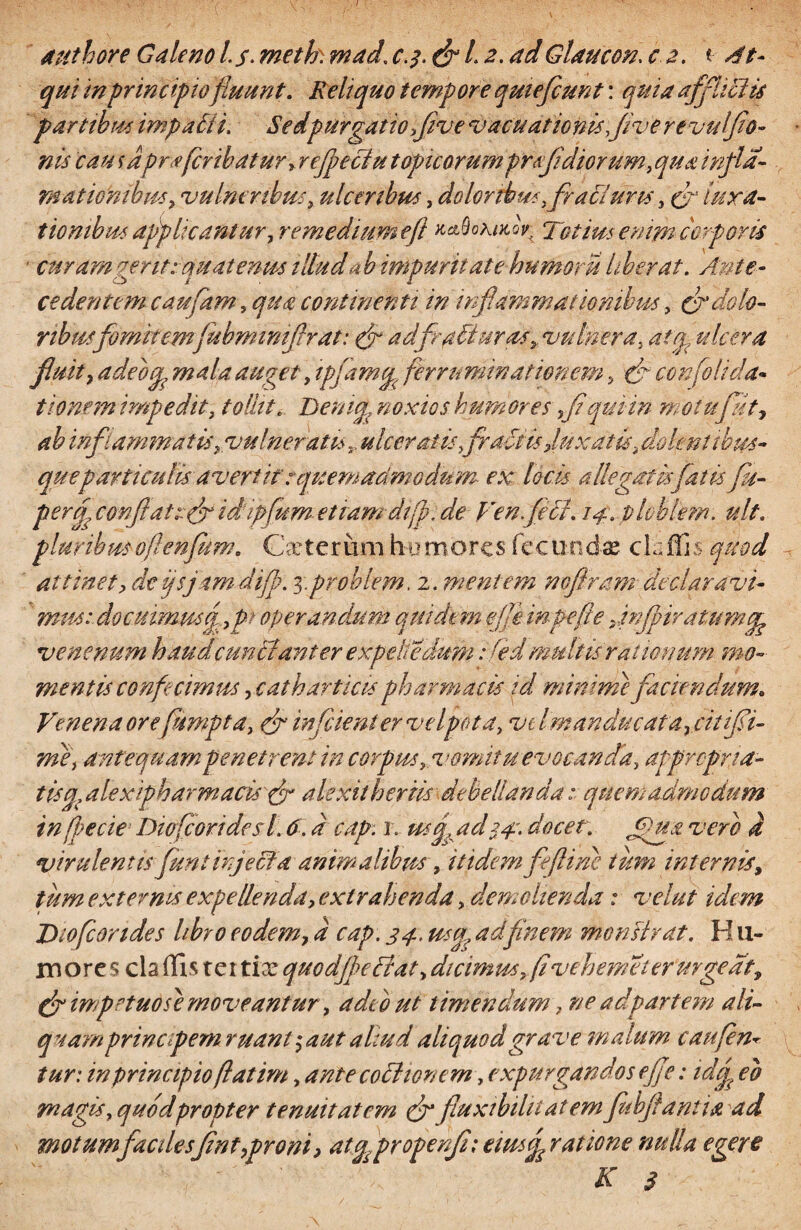 authore Galeno l. 5. meth. med. c. 3. & l. 2. ad Glaucon. c. 2. At-
qui in principio fluunt. Reliquo tempore quiescunt: quia afflictis
partibus impacti. Sed purgatio, sive vacuationis, sive revulsio-
nis causâ præscribatur, respectu topicorum præsidiorum, quæ inflã-
mationibus, vulneribus, ulceribus, doloribus, fracturis, & luxa-
tionibus applicantur, remedium est καθολικὸν. Totius enim corporis
curam gerit: quatenus illud ab impuritate humorũ liberat. Ante-
cedentem causam, quæ continenti in inflammationibus, & dolo-
ribus fomitem subministrat: & ad fracturas, vulnera, atq; ulcera
fluit, adeoq; mala auget, ipsamq; ferruminationem, & consolida-
tionem impedit, tollit. Deniq; noxios humores, si qui in motu sũt,
ab inflammatis, vulneratis, ulceratis, fractis, luxatis, dolentibus-
que particulis avertit: quemadmodum ex locis allegatis satis su-
perq; constat: & id ipsum etiam disp. de Ven. sect. 14. problem. ult.
pluribus ostensum. Cæterùm humores secundæ classis quod
attinet, de ijs jam disp. 3. problem. 2. mentem nostram declaravi-
mus: docuimusq;, properandum quidem esse in peste, inspiratumq;
venenum haud cunctanter expellẽdum: sed multis rationum mo-
mentis confecimus, catharticis pharmacis id minimè faciendum.
Venena ore sumpta, & inscienter vel pota, vel manducata, citissi-
mè, antequam penetrent in corpus, vomitu evocanda, appropria-
tisq; alexipharmacis & alexitheriis debellanda: quemadmodum
in specie Dioscorides l. 6. à cap. 1. usq; ad 34. docet. Quæ verò à
virulentis sunt injecta animalibus, itidem festinè tùm internis,
tùm externis expellenda, extrahenda, demolienda: velut idem
Dioscorides libro eodem, à cap. 34. usq; ad finem monstrat. Hu-
mores classis tertiæ quod spectat, dicimus, si vehemẽter urgeãt,
& impetuosè moveantur, adeò ut timendum, ne ad partem ali-
quam principem ruant; aut aliud aliquod grave malum causen-
tur: in principio statim, ante coctionem, expurgandos esse: idq; eò
magis, quòd propter tenuitatem & fluxibilitatem substantiæ ad
motum faciles sint, proni, atq; propensi: eiusq; ratione nulla egere
K 3